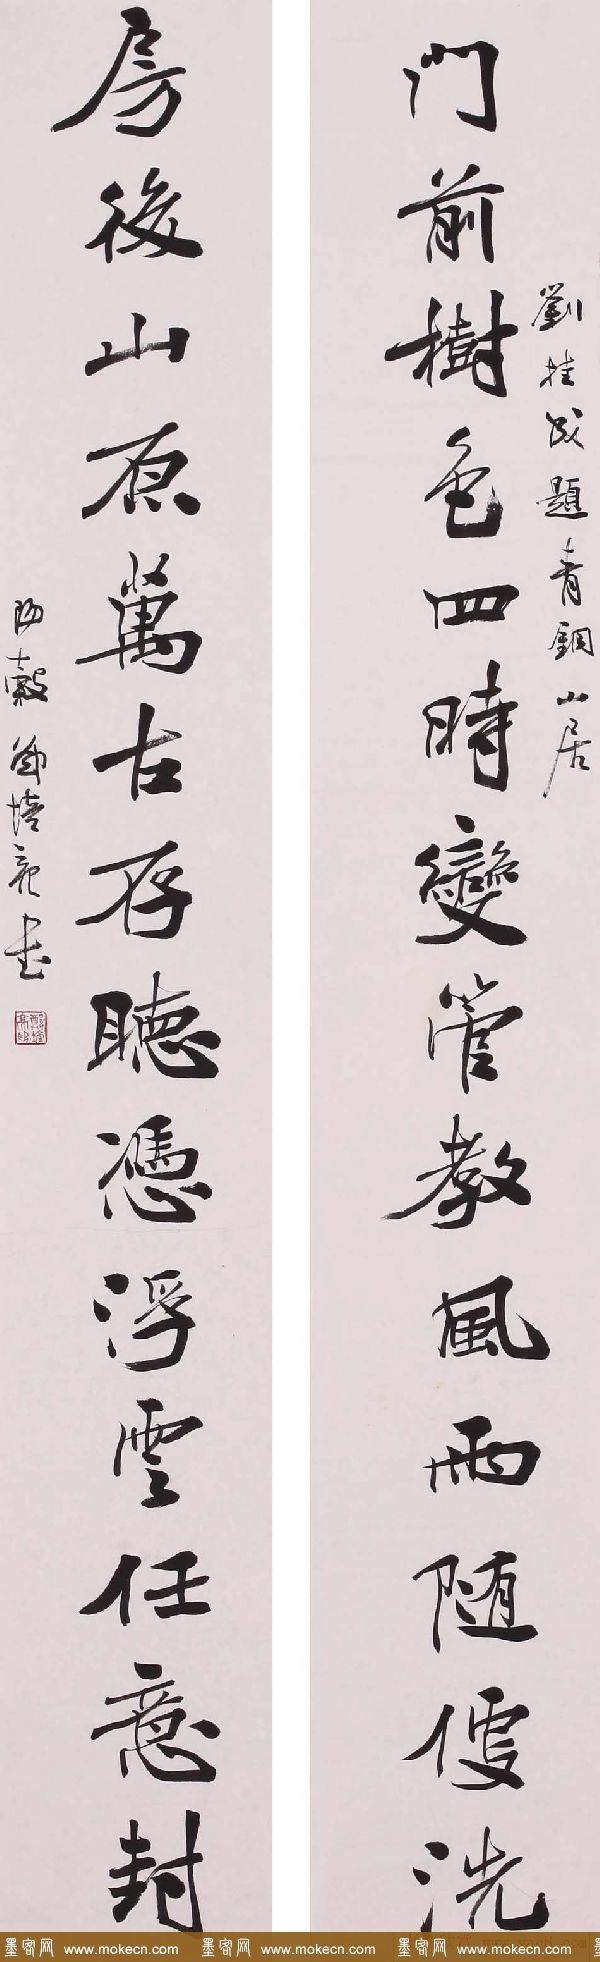 劉桂成題青銅山居
門前樹色四時變管教風雨隨便洗
房後山原萬古存聽憑浮雲任意封
陽穀 鄭培亮書
墨客网 www.mokecn.com 墨客网 www.mokecn.com 墨客网 www.mokecn.com